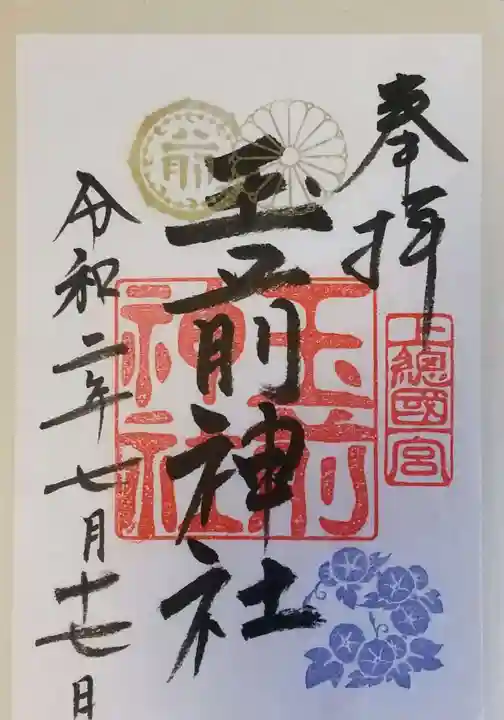 奉拝
上總國一宮
前
玉前神社
玉前
神社
令和二年七月十七日